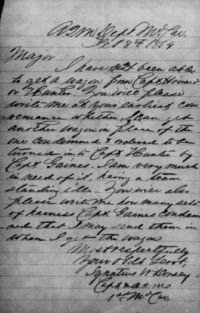 Feby 8th 1864
Major
I have not been able
to get a wagon from Capt Howard
or Hunter. You will please
write me at your earliest con
venience whether I can get
another wagon in place of the
one condemned & ordered to be
turned in to Capt Hunter by
Capt Gaines. I am very much
in need of it having a team
standing idle. You will also
please write me how many sets
of harness Capt Gaines condem
ned that I may send them in
when I get the wagon
Most respectfully
Your Obt Servt
Ignatius W Dorsey
Capt & A.Q.M.
1st Md Cav